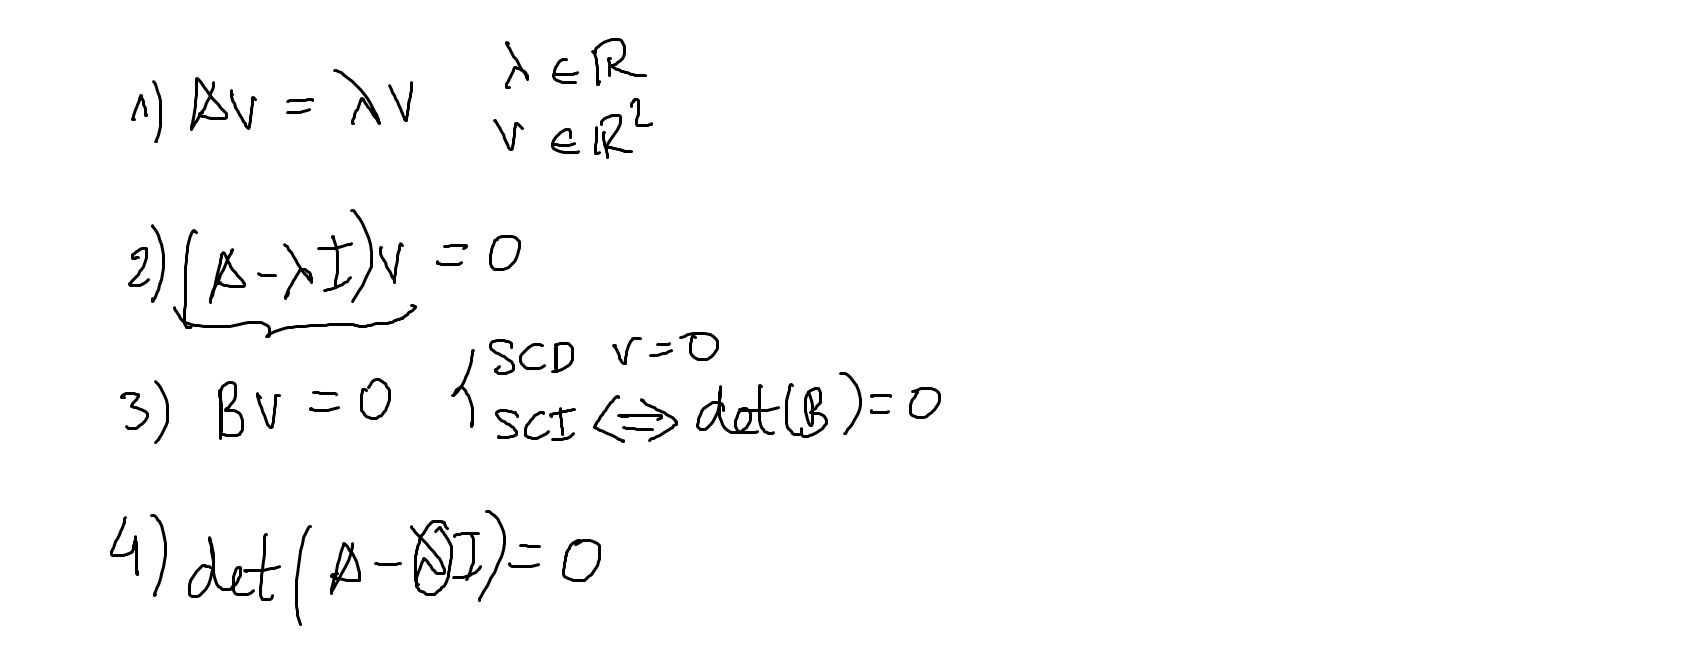 1) Av = λv λ ∈ ℝ
v ∈ ℝ²
2) (A-λI)v = 0
3) Bv = 0 { SCD v=0
SCI ⇔ det(B)=0
4) det(A-λI)=0